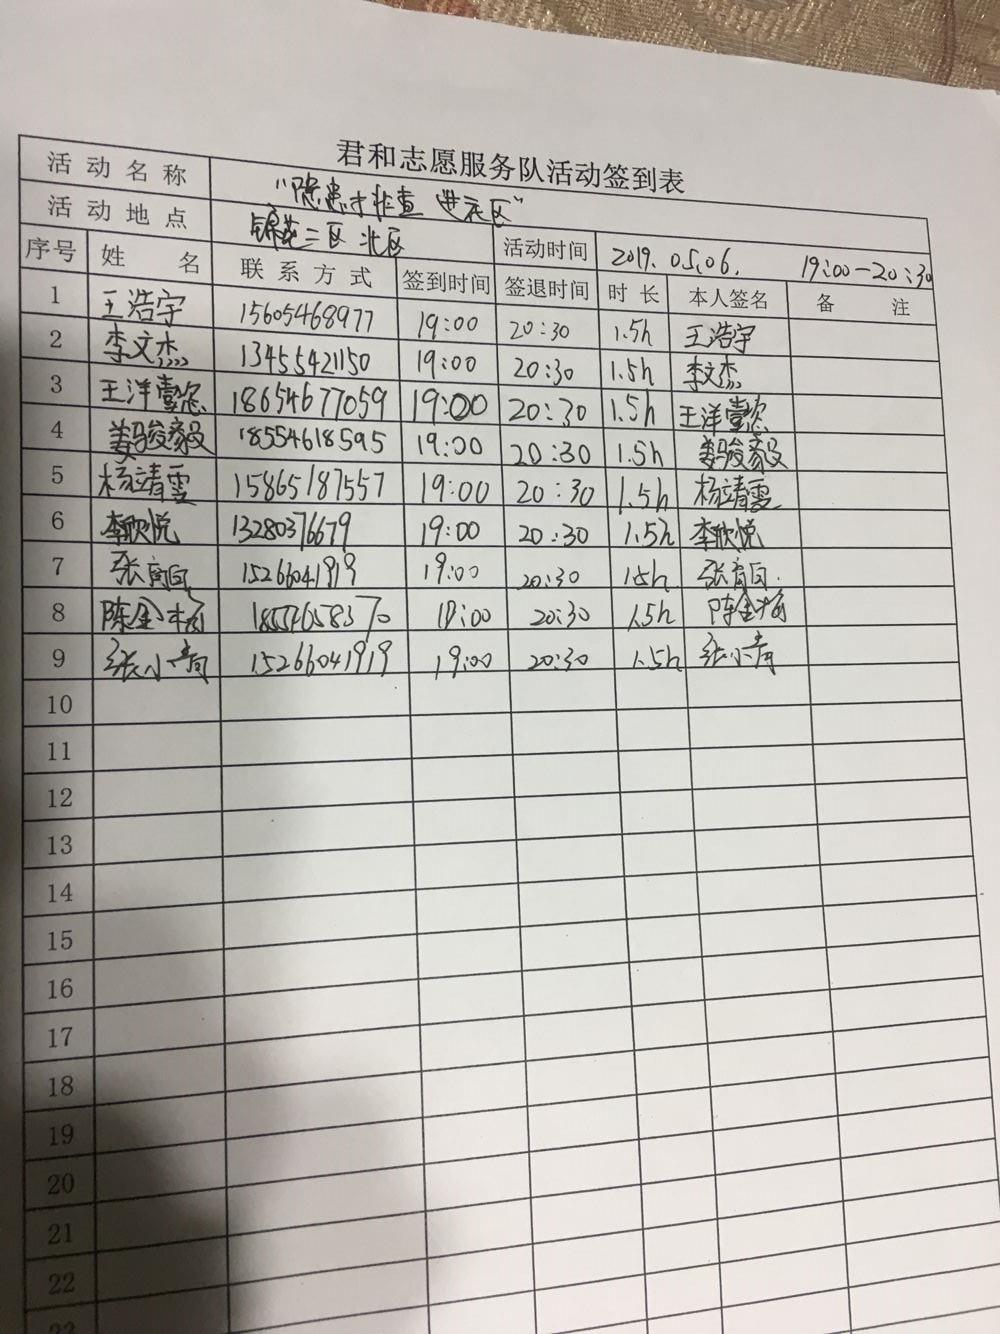 君和志愿服务队活动签到表
活动名称 "隐患排查 进社区"
活动地点 锦苑二区 北区 活动时间 2019.05.06. 19:00-20:30
序号 姓名 联系方式 签到时间 签退时间 时长 本人签名 备注
1 王浩宇 15605468977 19:00 20:30 1.5h 王浩宇
2 李文杰 13455421150 19:00 20:30 1.5h 李文杰
3 王洋 18654677059 19:00 20:30 1.5h 王洋
4 姜骏毅 18554618595 19:00 20:30 1.5h 姜骏毅
5 杨靖雯 15865187557 19:00 20:30 1.5h 杨靖雯
6 李欣悦 13280376679 19:00 20:30 1.5h 李欣悦
7 张 15266041919 19:00 20:30 1.5h 张
8 陈金杨 18554658370 19:00 20:30 1.5h 陈金杨
9 张小青 15266041919 19:00 20:30 1.5h 张小青
10
11
12
13
14
15
16
17
18
19
20
21
22
23